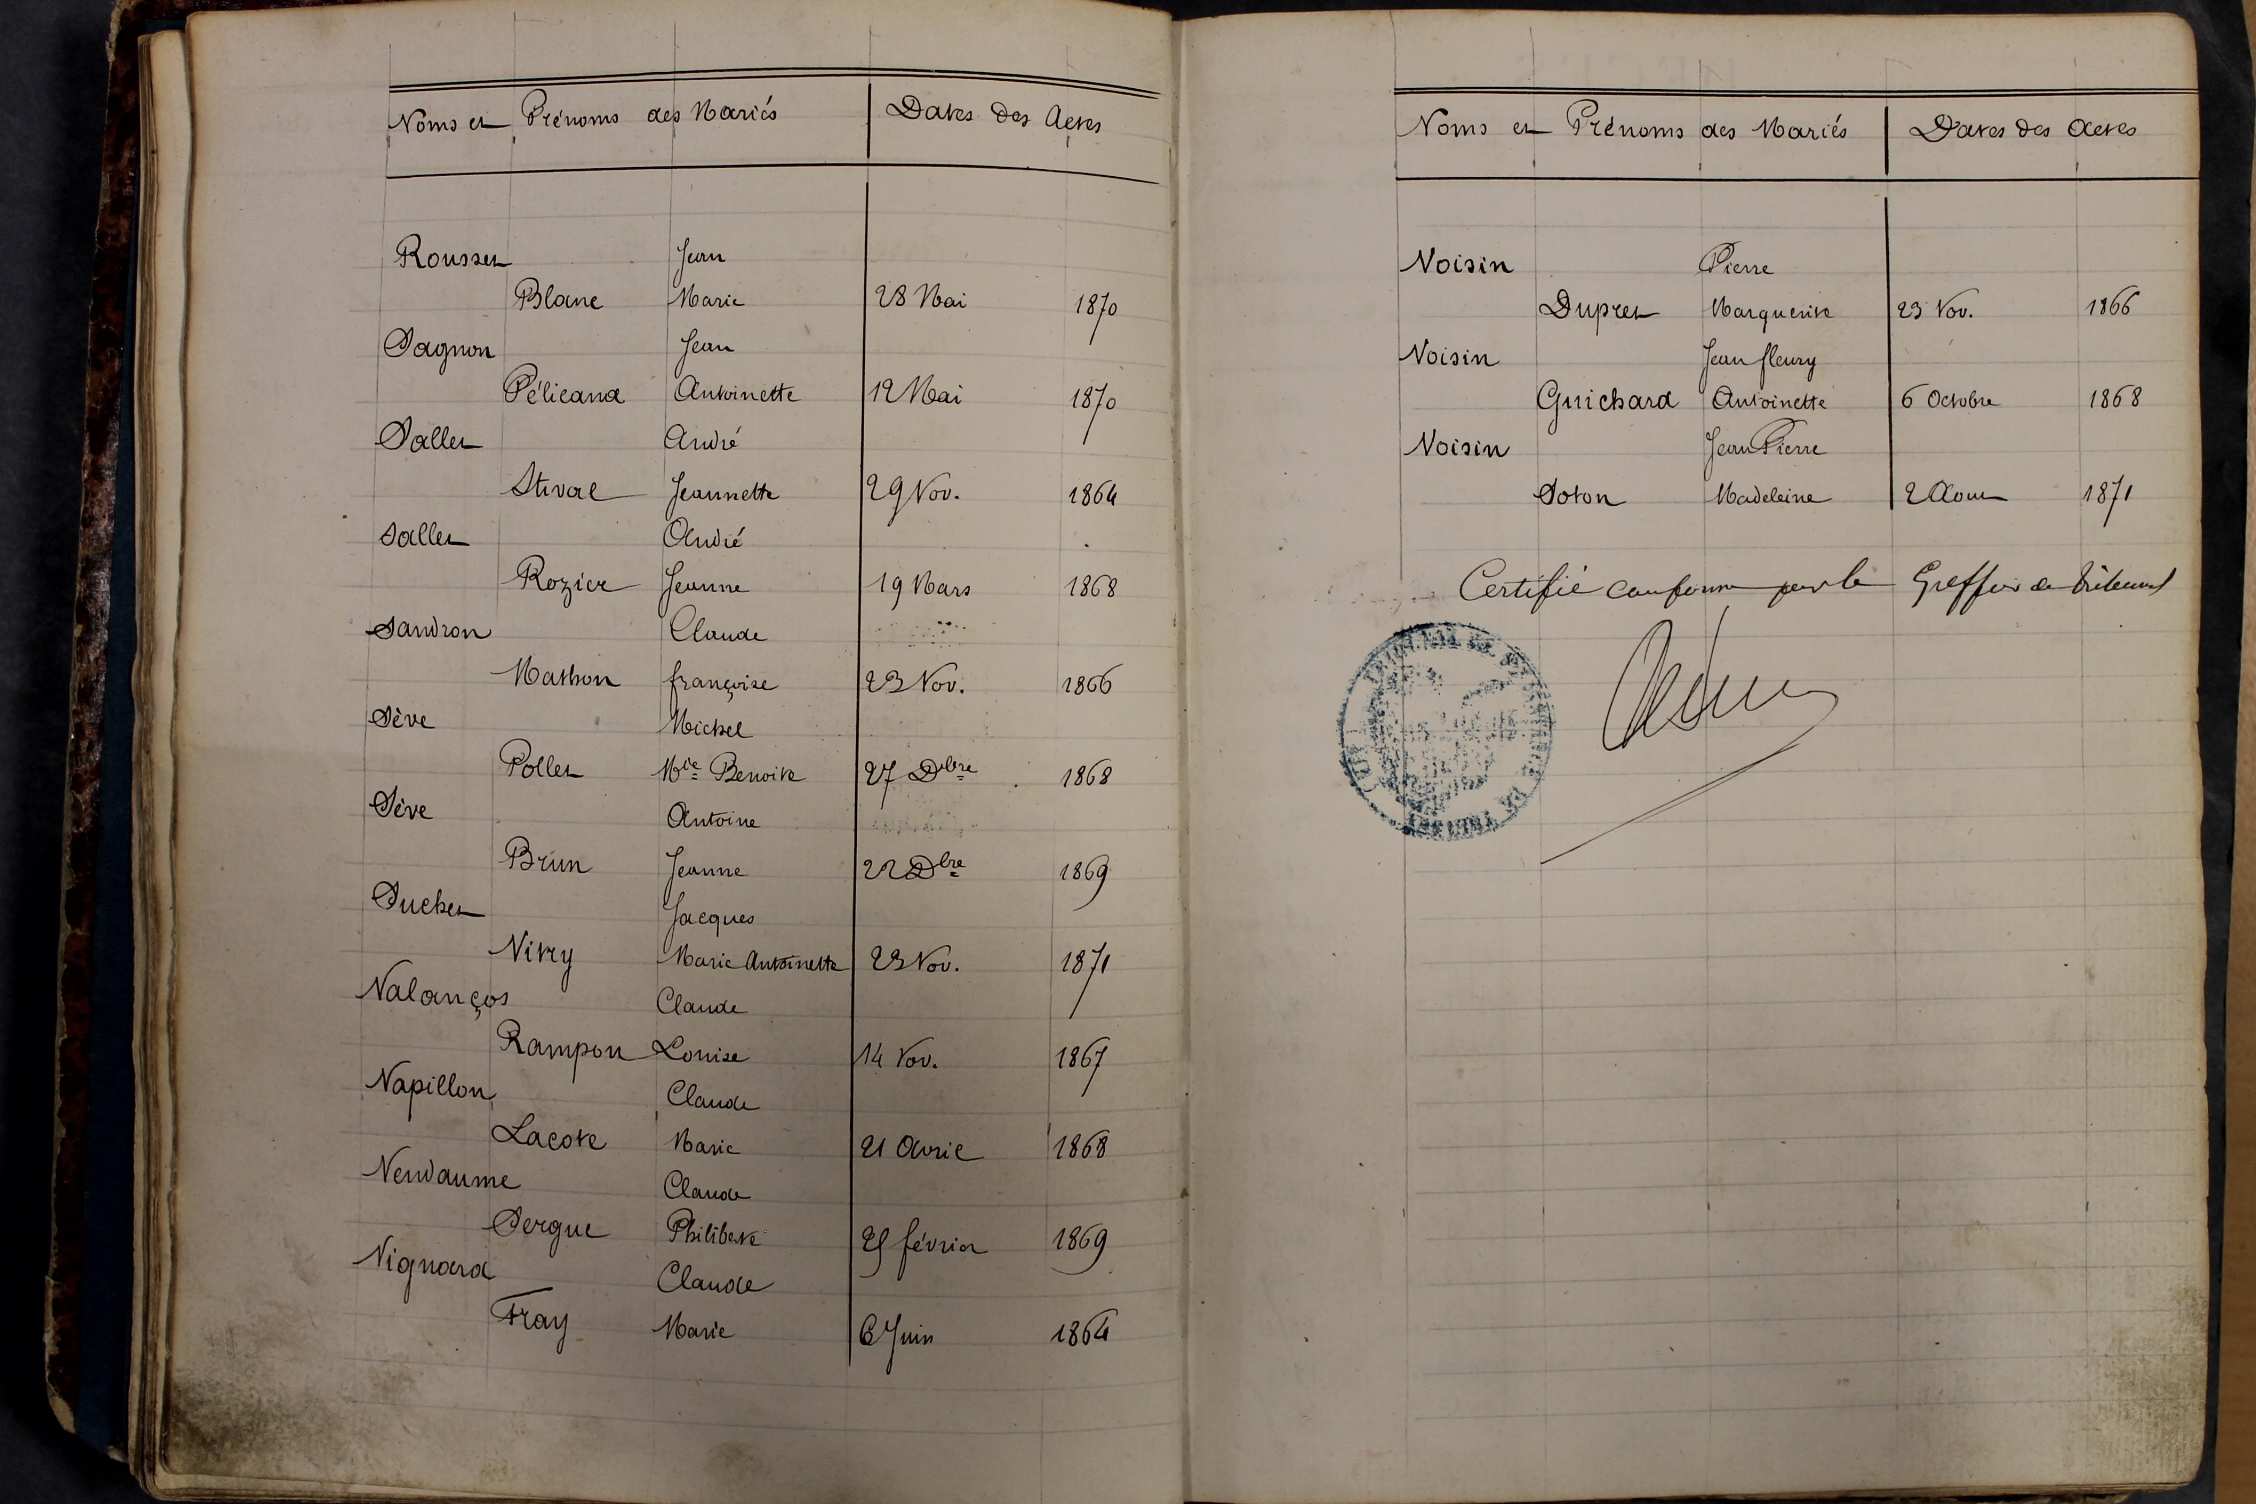 Noms et Prénoms des Mariés Dates des Actes
Rousset Jean
Blanc Marie 28 Mai 1870
Sagnon Jean
Pélicand Antoinette 12 Mai 1870
Sallet André
Stival Jeannette 29 Nov. 1864
Sallet André
Rozier Jeanne 19 Mars 1868
Sandron Claude
Mathon françoise 23 Nov. 1866
Sève Michel
Pollet Mie Benoite 27 Dbre 1868
Sève Antoine
Brun Jeanne 22 Dbre 1869
Suchet Jacques
Vitry Marie Antoinette 23 Nov. 1871
Valançot Claude
Rampon Louise 14 Nov. 1867
Vapillon Claude
Lacote Marie 21 Avril 1868
Vendaume Claude
Sergue Philiberte 25 février 1869
Vignard Claude
Fray Marie 6 Juin 1864
Noms et Prénoms des Mariés Dates des Actes
Voisin Pierre
Dupret Marguerite 23 Nov. 1866
Voisin Jean fleury
Guichard Antoinette 6 Octobre 1868
Voisin Jean Pierre
Soton Madeleine 2 Aout 1871
Certifié conforme par le Greffier du Tribunal